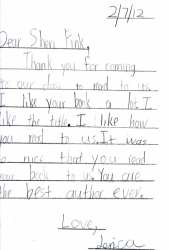 2/7/12
Dear Shan Fink,
Thank you for coming
to our class to read to us.
I like your book a lot. I
like the title. I like how
you read to us. It was
so nice that you read
your book to us. You are
the best author ever.
Love,
Janica